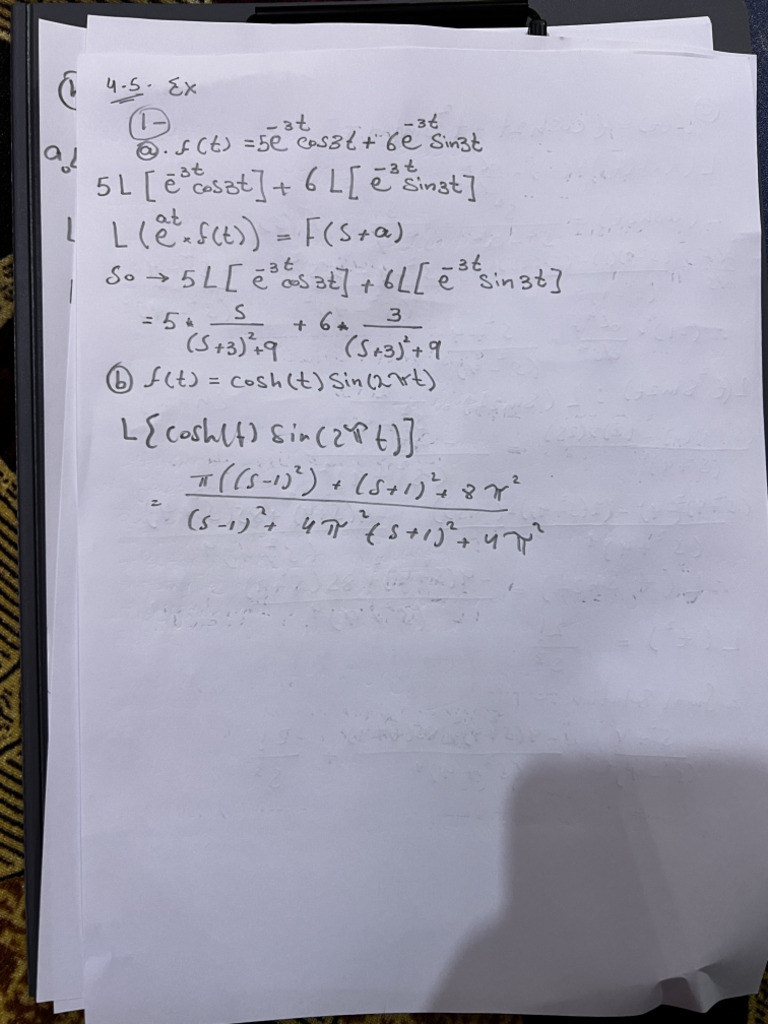 4.5. Ex
1-
a. f(t) = 5e^-3t cos3t + 6e^-3t sin3t
5 L [e^-3t cos3t] + 6 L[e^-3t sin3t]
L (e^at × f(t)) = F(s+a)
So → 5 L[e^-3t cos3t] + 6L[e^-3t sin3t]
= 5 * s/((s+3)²+9) + 6 * 3/((s+3)²+9)
b f(t) = cosh(t) sin(2πt)
L{cosh(t) sin(2πt)]
= π((s-1)²) + (s+1)² + 8π² / (s-1)² + 4π² (s+1)² + 4π²